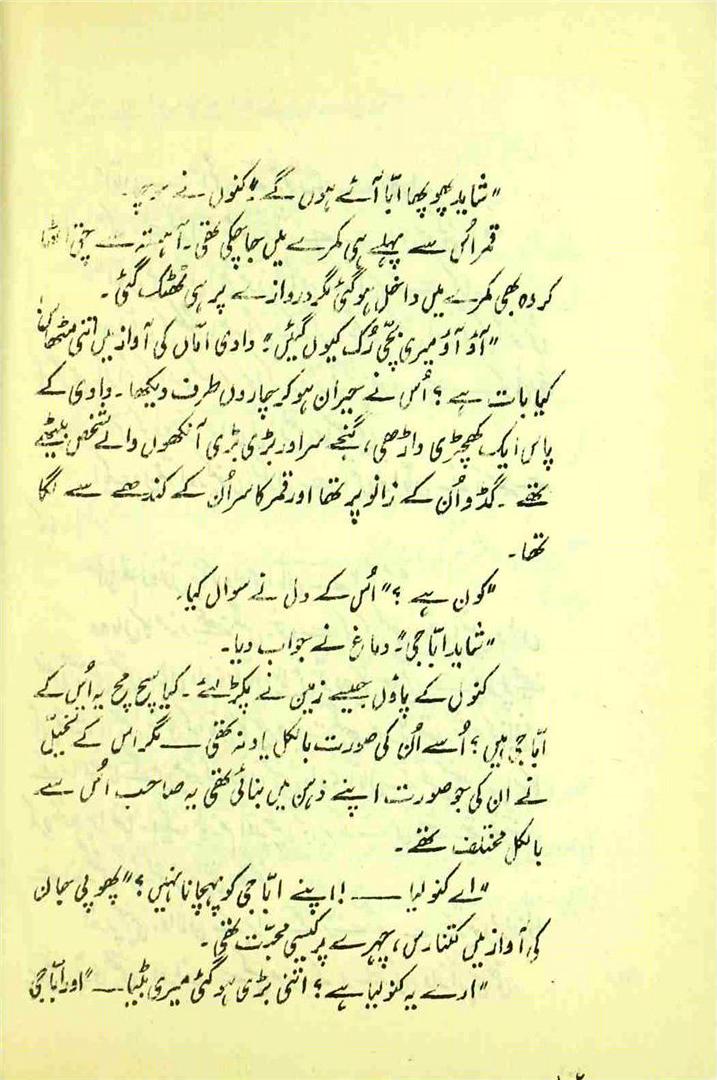 "شاید پھوپھا ابّا آئے ہوں گے!" کنول نے سوچا۔
قمر اُس سے پہلے ہی کمرے میں جا چکی تھی۔ آہستہ سے چق اٹھا
کر وہ بھی کمرے میں داخل ہو گئی مگر دروازے پر ہی ٹھٹک گئی۔
"آؤ آؤ میری بچّی رُک کیوں گئیں!" دادی امّاں کی آواز میں اتنی مٹھاس
کیا بات ہے؟ اُس نے حیران ہو کر چاروں طرف دیکھا۔ دادی کے
پاس ایک کھچڑی داڑھی، گنجے سر اور بڑی بڑی آنکھوں والے شخص بیٹھے
تھے۔ گڈو اُن کے زانو پر تھا اور قمر کا سر اُن کے کندھے سے لگا
تھا۔
"کون ہے؟" اُس کے دل نے سوال کیا۔
"شاید ابّا جی!" دماغ نے جواب دیا۔
کنول کے پاؤں جیسے زمین نے پکڑ لئے۔ کیا سچ مچ یہ اُس کے
ابّا جی ہیں؟ اُسے اُن کی صورت بالکل یاد نہ تھی — مگر اس کے تخیّل
نے ان کی جو صورت اپنے ذہن میں بنائی تھی یہ صاحب اُس سے
بالکل مختلف تھے۔
"اے کنولیا —! اپنے ابّا جی کو پہچانا نہیں؟" پھوپی جان
کی آواز میں کتنا رس، چہرے پر کیسی محبّت تھی۔
"ارے یہ کنولیا ہے؟ اتنی بڑی ہو گئی میری بٹیا —" اور ابّا جی